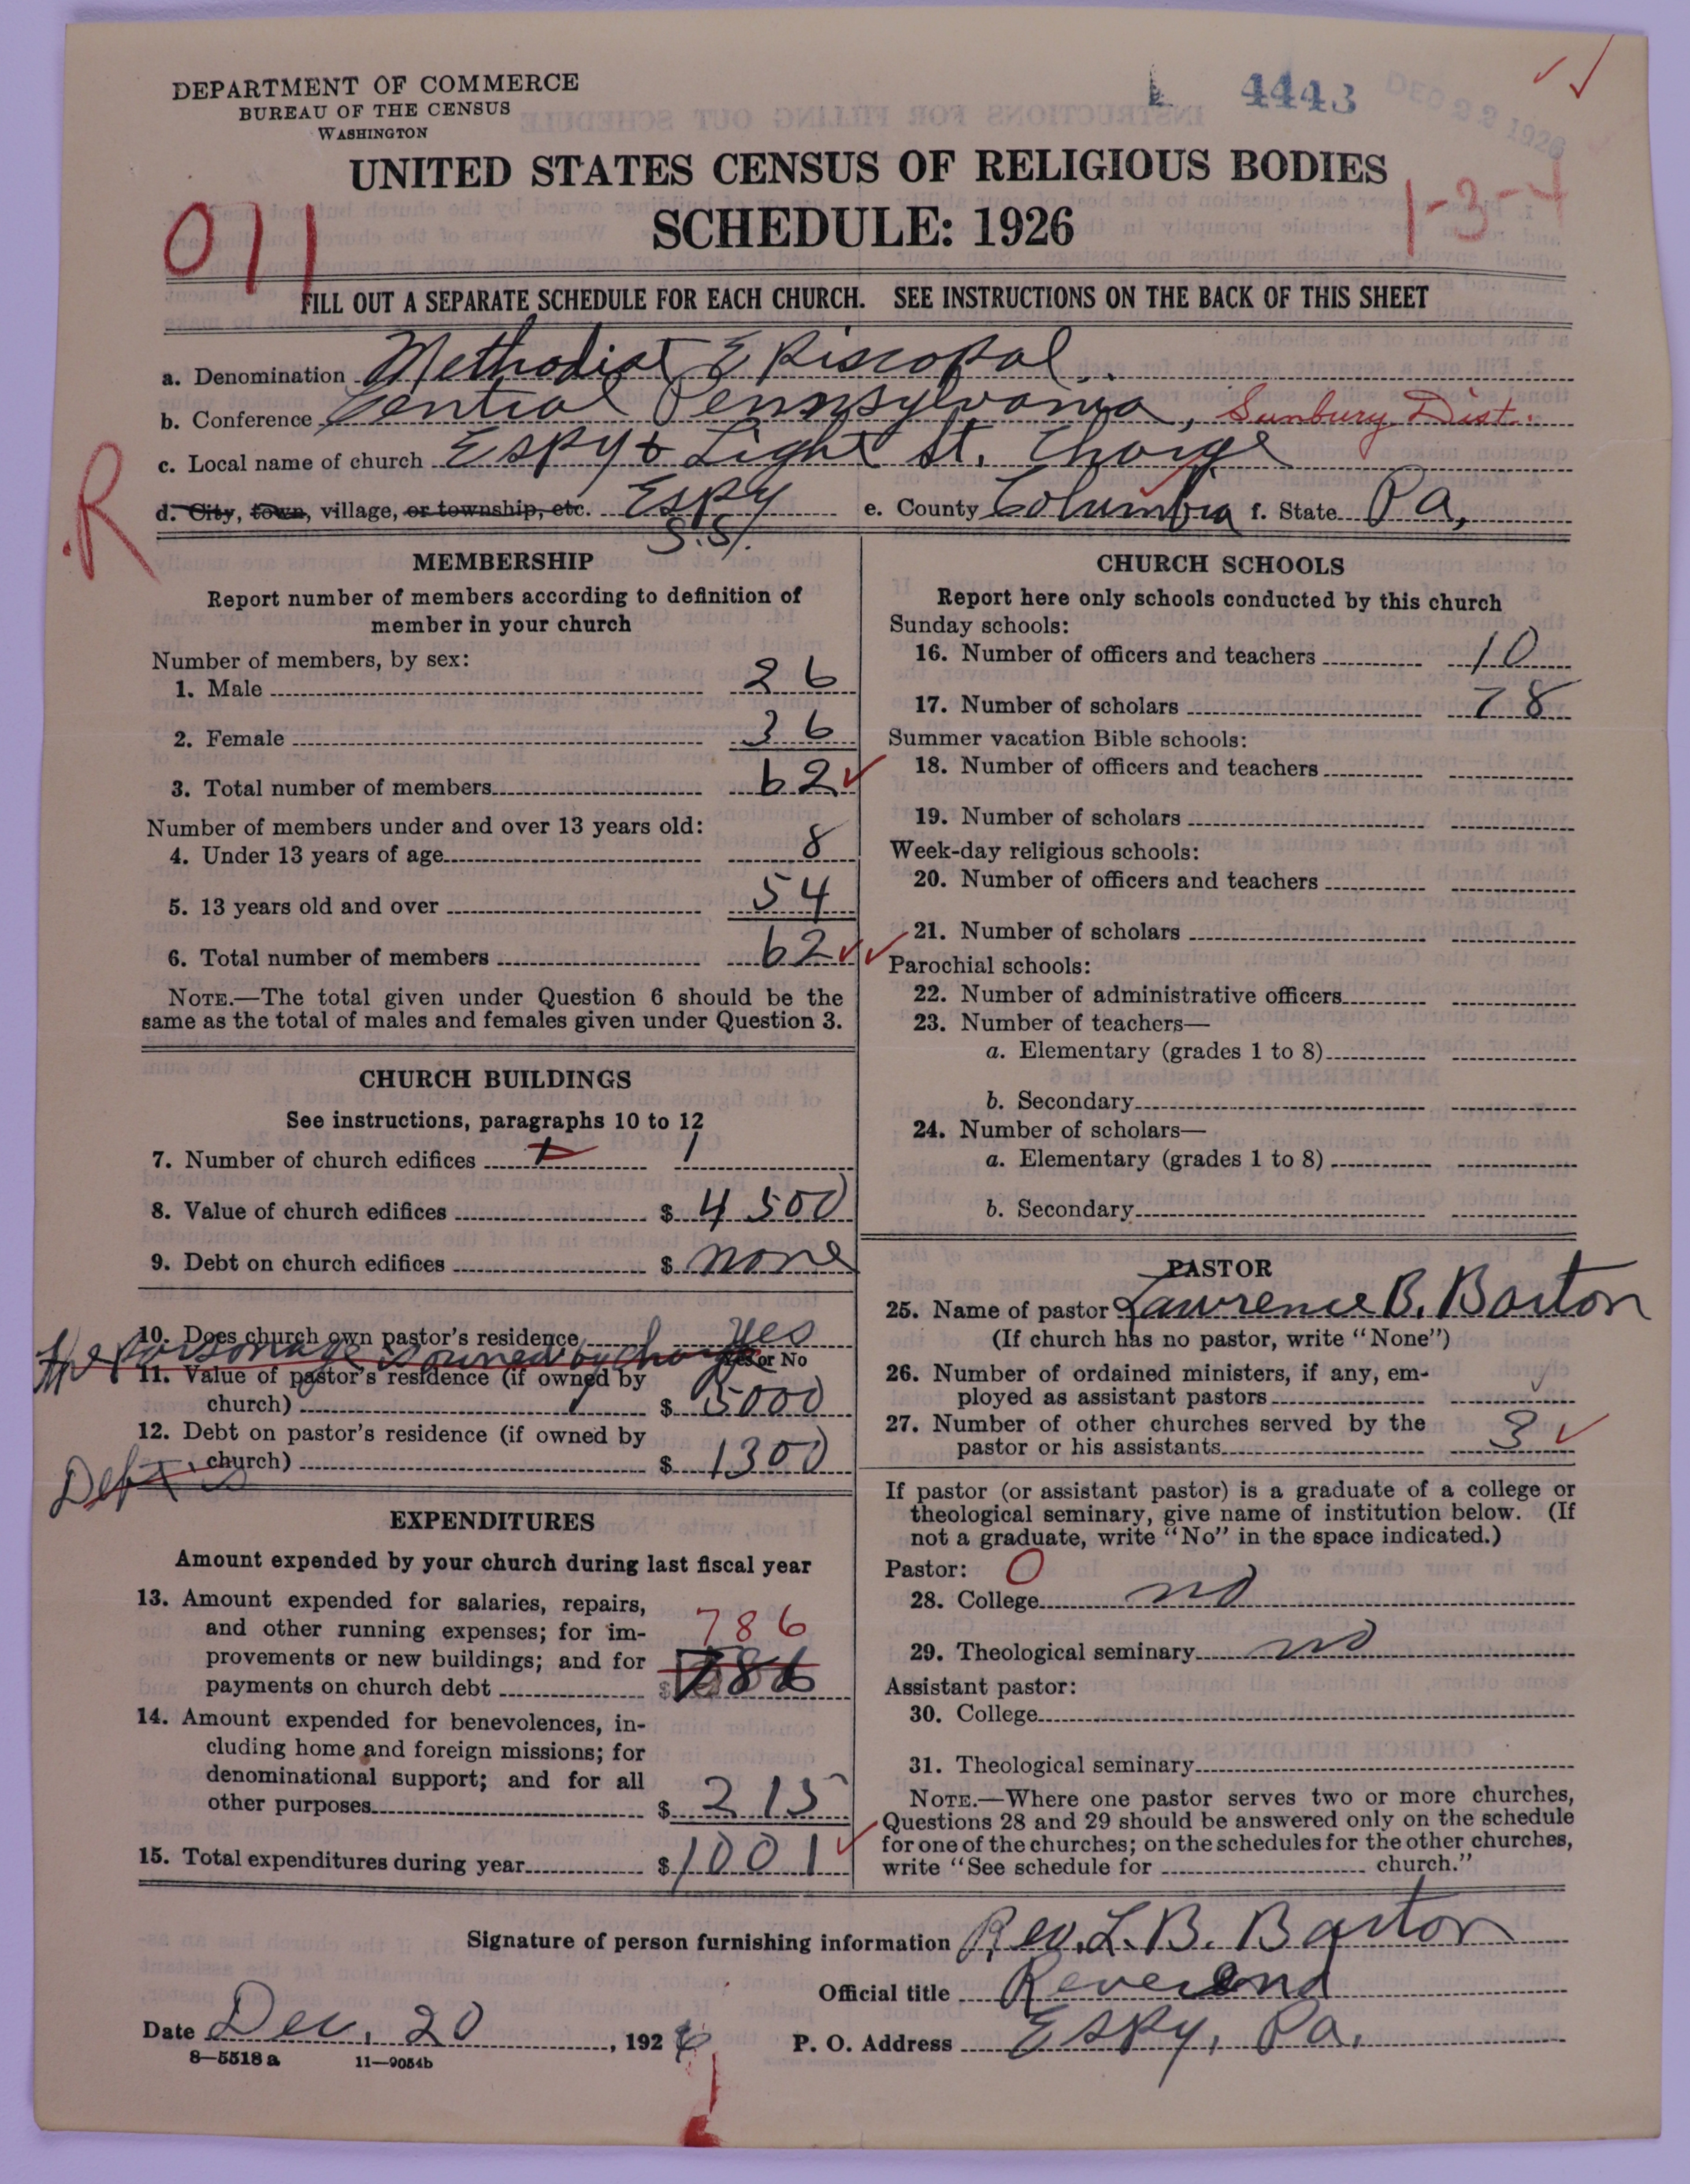 DEPARTMENT OF COMMERCE
BUREAU OF THE CENSUS
WASHINGTON
4443
DEC 22 1926
UNITED STATES CENSUS OF RELIGIOUS BODIES
SCHEDULE: 1926
011
1-3-4
FILL OUT A SEPARATE SCHEDULE FOR EACH CHURCH. SEE INSTRUCTIONS ON THE BACK OF THIS SHEET
a. Denomination Methodist Episcopal
b. Conference Central Pennsylvania, Sunbury Dist.
c. Local name of church Espy & Light St. Charge
R
d. City, town, village, or township, etc. Espy e. County Columbia f. State Pa.
S.S.
MEMBERSHIP
Report number of members according to definition of
member in your church
Number of members, by sex:
1. Male 26
2. Female 36
3. Total number of members 62
Number of members under and over 13 years old:
4. Under 13 years of age 8
5. 13 years old and over 54
6. Total number of members 62
NOTE.—The total given under Question 6 should be the
same as the total of males and females given under Question 3.
CHURCH BUILDINGS
See instructions, paragraphs 10 to 12
7. Number of church edifices 1 1
8. Value of church edifices $ 4500
9. Debt on church edifices $ none
10. Does church own pastor's residence yes
Yes or No
The Parsonage is owned by charge
11. Value of pastor's residence (if owned by
church) $ 5000
12. Debt on pastor's residence (if owned by
church) $ 1300
Debt is
EXPENDITURES
Amount expended by your church during last fiscal year
13. Amount expended for salaries, repairs,
and other running expenses; for im-
provements or new buildings; and for
payments on church debt $ 786
786
14. Amount expended for benevolences, in-
cluding home and foreign missions; for
denominational support; and for all
other purposes $ 215
15. Total expenditures during year $ 1001
CHURCH SCHOOLS
Report here only schools conducted by this church
Sunday schools:
16. Number of officers and teachers 10
17. Number of scholars 78
Summer vacation Bible schools:
18. Number of officers and teachers
19. Number of scholars
Week-day religious schools:
20. Number of officers and teachers
21. Number of scholars
Parochial schools:
22. Number of administrative officers
23. Number of teachers—
a. Elementary (grades 1 to 8)
b. Secondary
24. Number of scholars—
a. Elementary (grades 1 to 8)
b. Secondary
PASTOR
25. Name of pastor Lawrence B. Barton
(If church has no pastor, write "None")
26. Number of ordained ministers, if any, em-
ployed as assistant pastors
27. Number of other churches served by the
pastor or his assistants 3
If pastor (or assistant pastor) is a graduate of a college or
theological seminary, give name of institution below. (If
not a graduate, write "No" in the space indicated.)
Pastor: O
28. College no
29. Theological seminary no
Assistant pastor:
30. College
31. Theological seminary
NOTE.—Where one pastor serves two or more churches,
Questions 28 and 29 should be answered only on the schedule
for one of the churches; on the schedules for the other churches,
write "See schedule for church."
Signature of person furnishing information Rev. L. B. Barton
Official title Reverend
Date Dec. 20, 1926 P. O. Address Espy, Pa.
8—5518 a 11—9054b